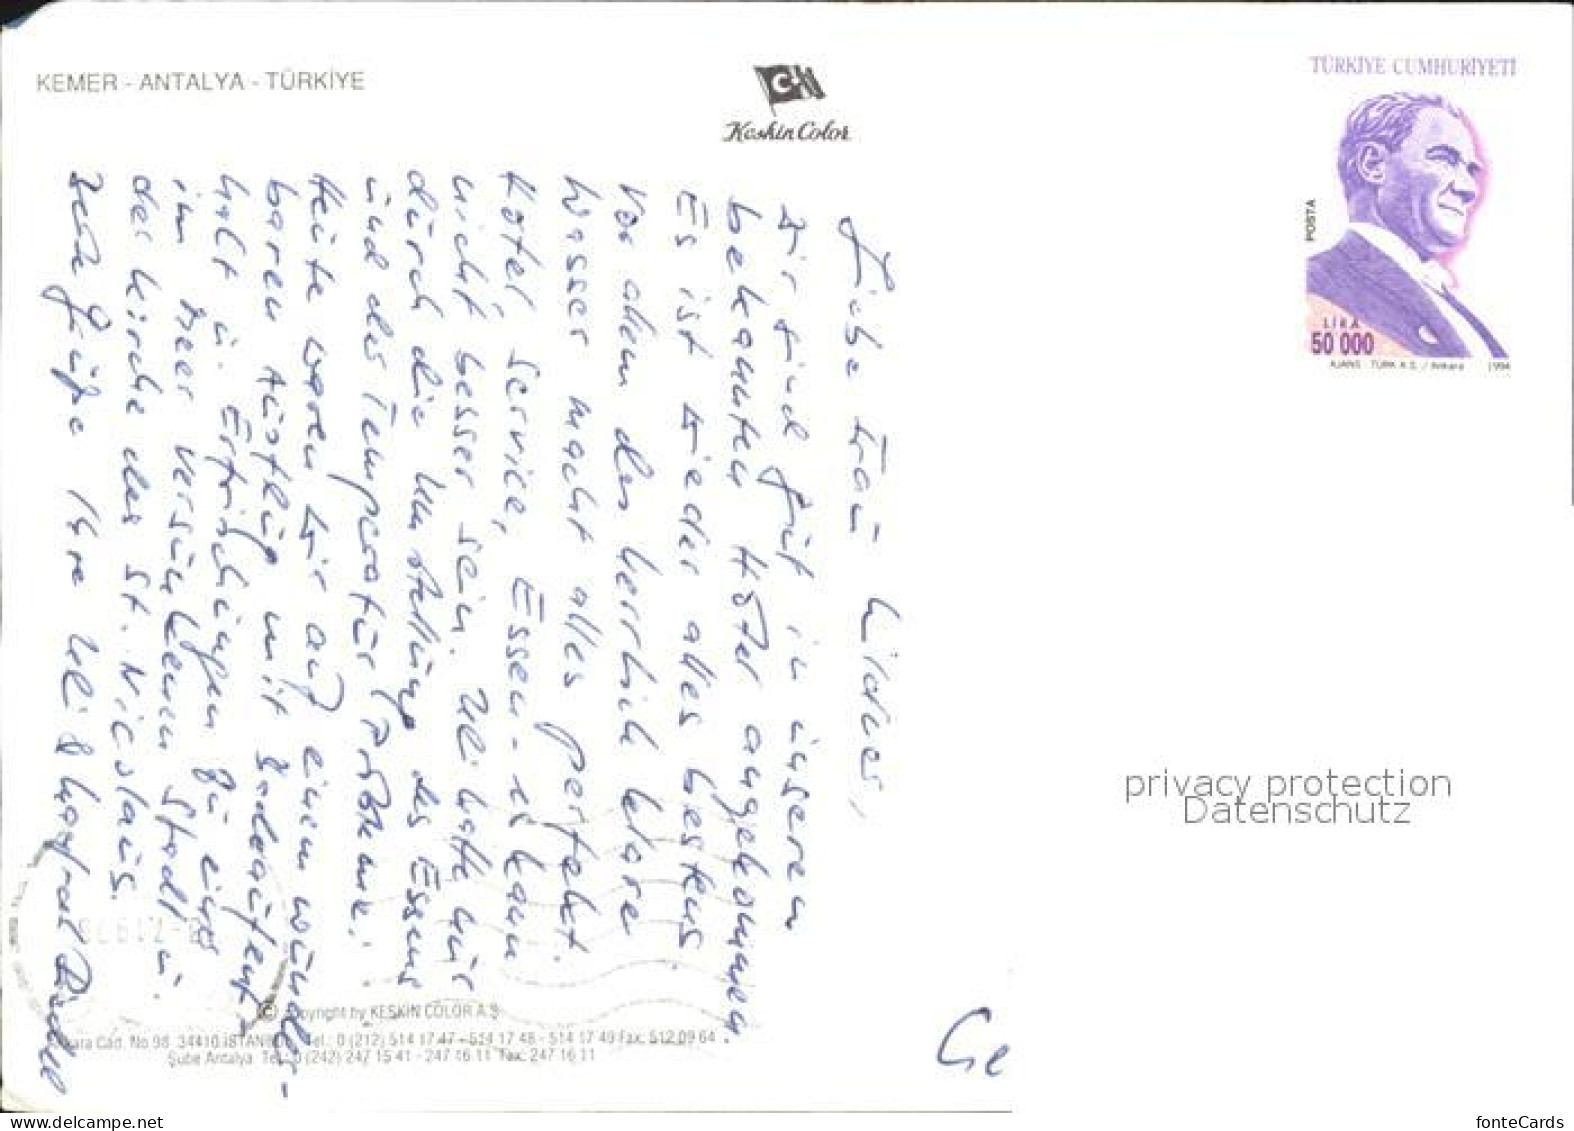 KEMER - ANTALYA - TÜRKİYE
Keskin Color
TÜRKİYE CUMHURİYETİ
POSTA
LİRA
50 000
AJANS - TÜRK A.Ş. / Ankara 1994
Liebe Frau
wir sind gut in unseren
bekannten Hotel angekommen.
Es ist wieder alles bestens.
Vor allem das herrlich klare
Wasser macht alles perfekt.
Hotel Service, Essen - es kann
nicht besser sein. Uli hatte nur
durch die Umstellung des Essens
und der Temperatur Probleme.
Heute waren wir auf einem wunder-
baren Ausflug mit
halt u. Erfrischungen zu einer
im Meer versunkenen Stadt u.
der Kirche des St. Nicolaus.
Grüße Ihre Uli &
Ge
privacy protection
Datenschutz
(C) Copyright by KESKİN COLOR A.Ş.
Ankara Cad. No 98 34410 İSTANBUL Tel.: 0 (212) 514 17 47 - 514 17 48 - 514 17 49 Fax: 512 09 64
Şube Antalya Tel.: 0 (242) 247 15 41 - 247 16 11 Fax: 247 16 11
www.delcampe.net
fonteCards